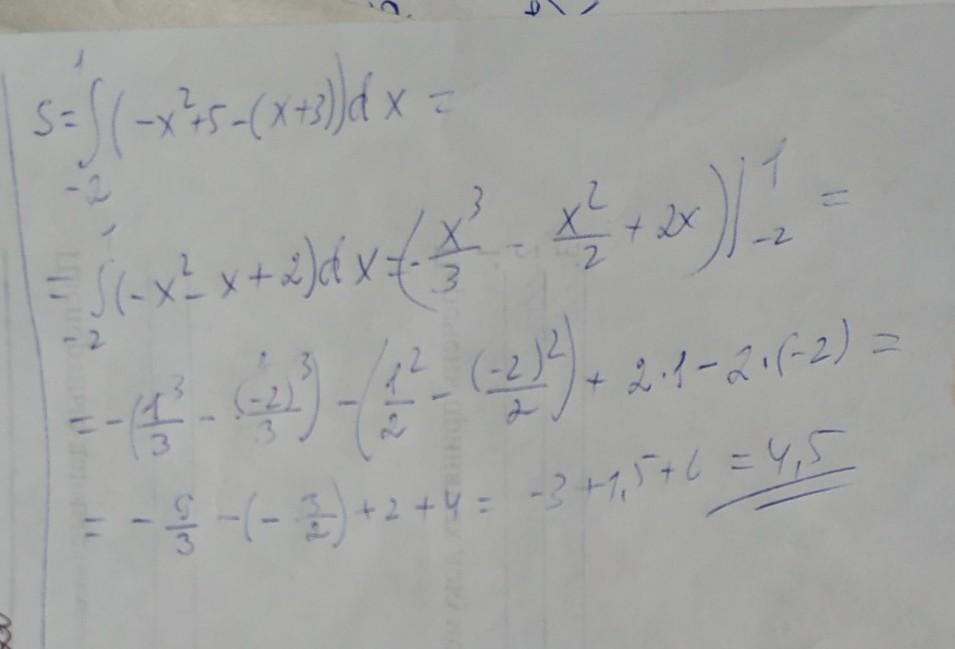 S = ∫_{-2}^{1} (-x² + 5 - (x+3)) dx =
= ∫_{-2}^{1} (-x² - x + 2) dx = (-x³/3 - x²/2 + 2x) |_{-2}^{1} =
= -(1³/3 - (-2)³/3) - (1²/2 - (-2)²/2) + 2·1 - 2·(-2) =
= -9/3 - (-3/2) + 2 + 4 = -3 + 1,5 + 6 = 4,5